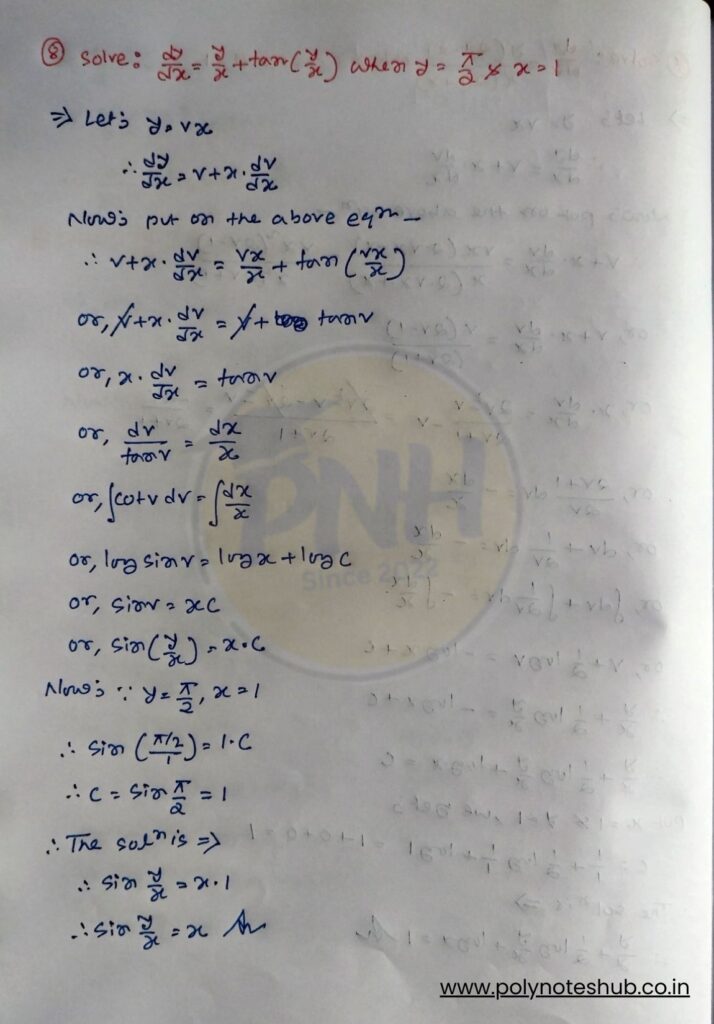 ⑧ Solve: dy/dx = y/x + tan(y/x) when y = π/2 & x = 1
⇒ Let's y = vx
∴ dy/dx = v + x · dv/dx
Now's put on the above eqn —
∴ v + x · dv/dx = vx/x + tan (vx/x)
or, v + x · dv/dx = v + tan v
or, x · dv/dx = tan v
or, dv/tan v = dx/x
or, ∫cot v dv = ∫dx/x
or, log sin v = log x + log C
or, sin v = xC
or, sin(y/x) = x · C
Now's ∵ y = π/2, x = 1
∴ sin (π/2/1) = 1 · C
∴ C = sin π/2 = 1
∴ The solⁿ is ⇒
∴ sin y/x = x · 1
∴ sin y/x = x An
PNH
Since 2022
www.polynoteshub.co.in